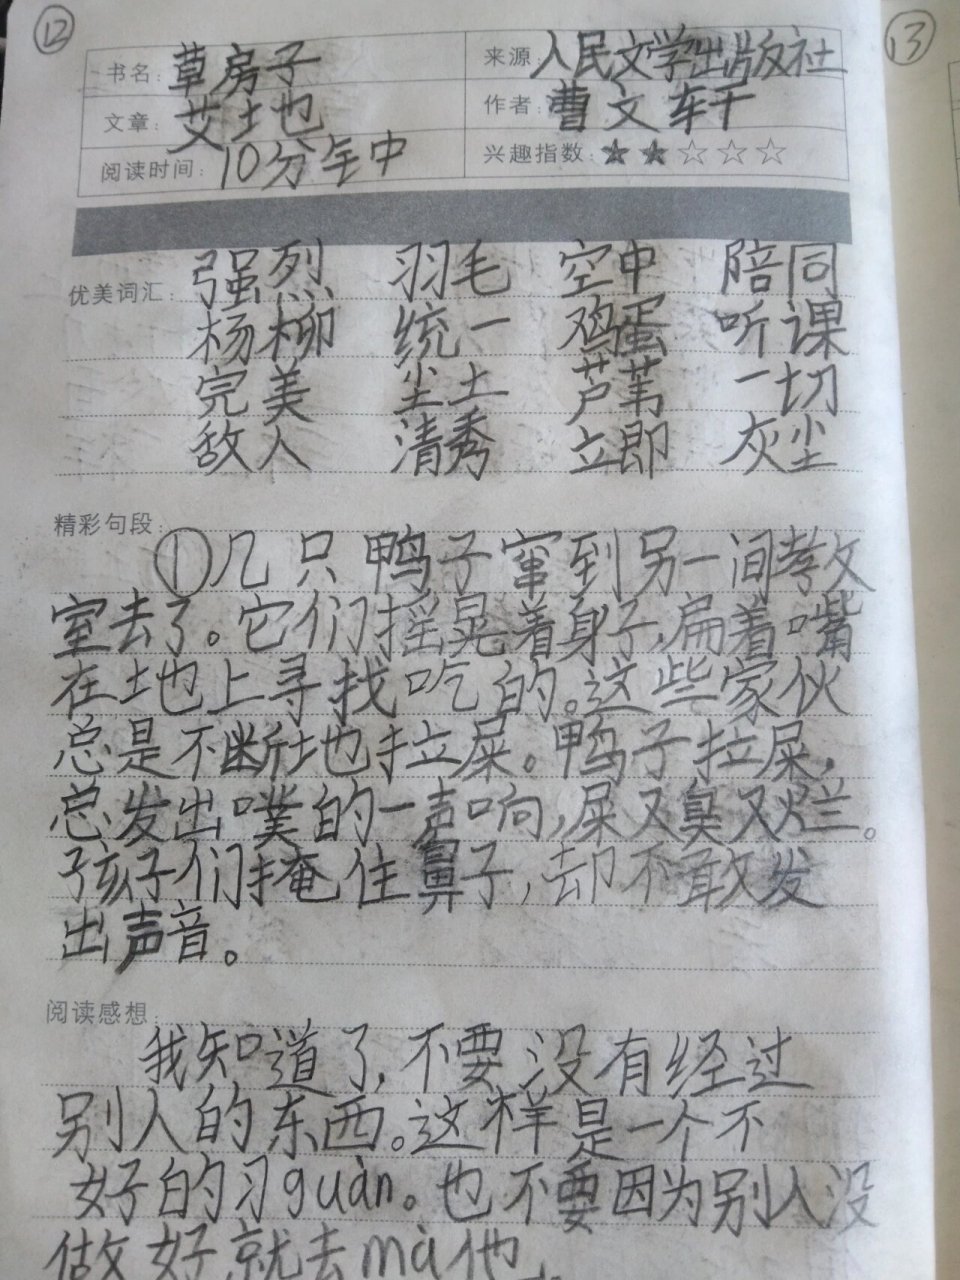 12
13
书名：草房子
来源：人民文学出版社
文章：艾地
作者：曹文轩
阅读时间：10分钟
兴趣指数：★★☆☆☆
优美词汇：强烈 羽毛 空中 陪同
杨柳 统一 鸡蛋 听课
完美 尘土 芦苇 一切
敌人 清秀 立即 灰尘
精彩句段：
①几只鸭子窜到另一间教
室去了。它们摇晃着身子，扁着嘴
在地上寻找吃的。这些家伙
总是不断地拉屎。鸭子拉屎，
总发出噗的一声响，屎又臭又烂。
孩子们掩住鼻子，却不敢发
出声音。
阅读感想：
我知道了，不要没有经过
别人的东西。这样是一个不
好的习guàn。也不要因为别人没
做好就去mà他